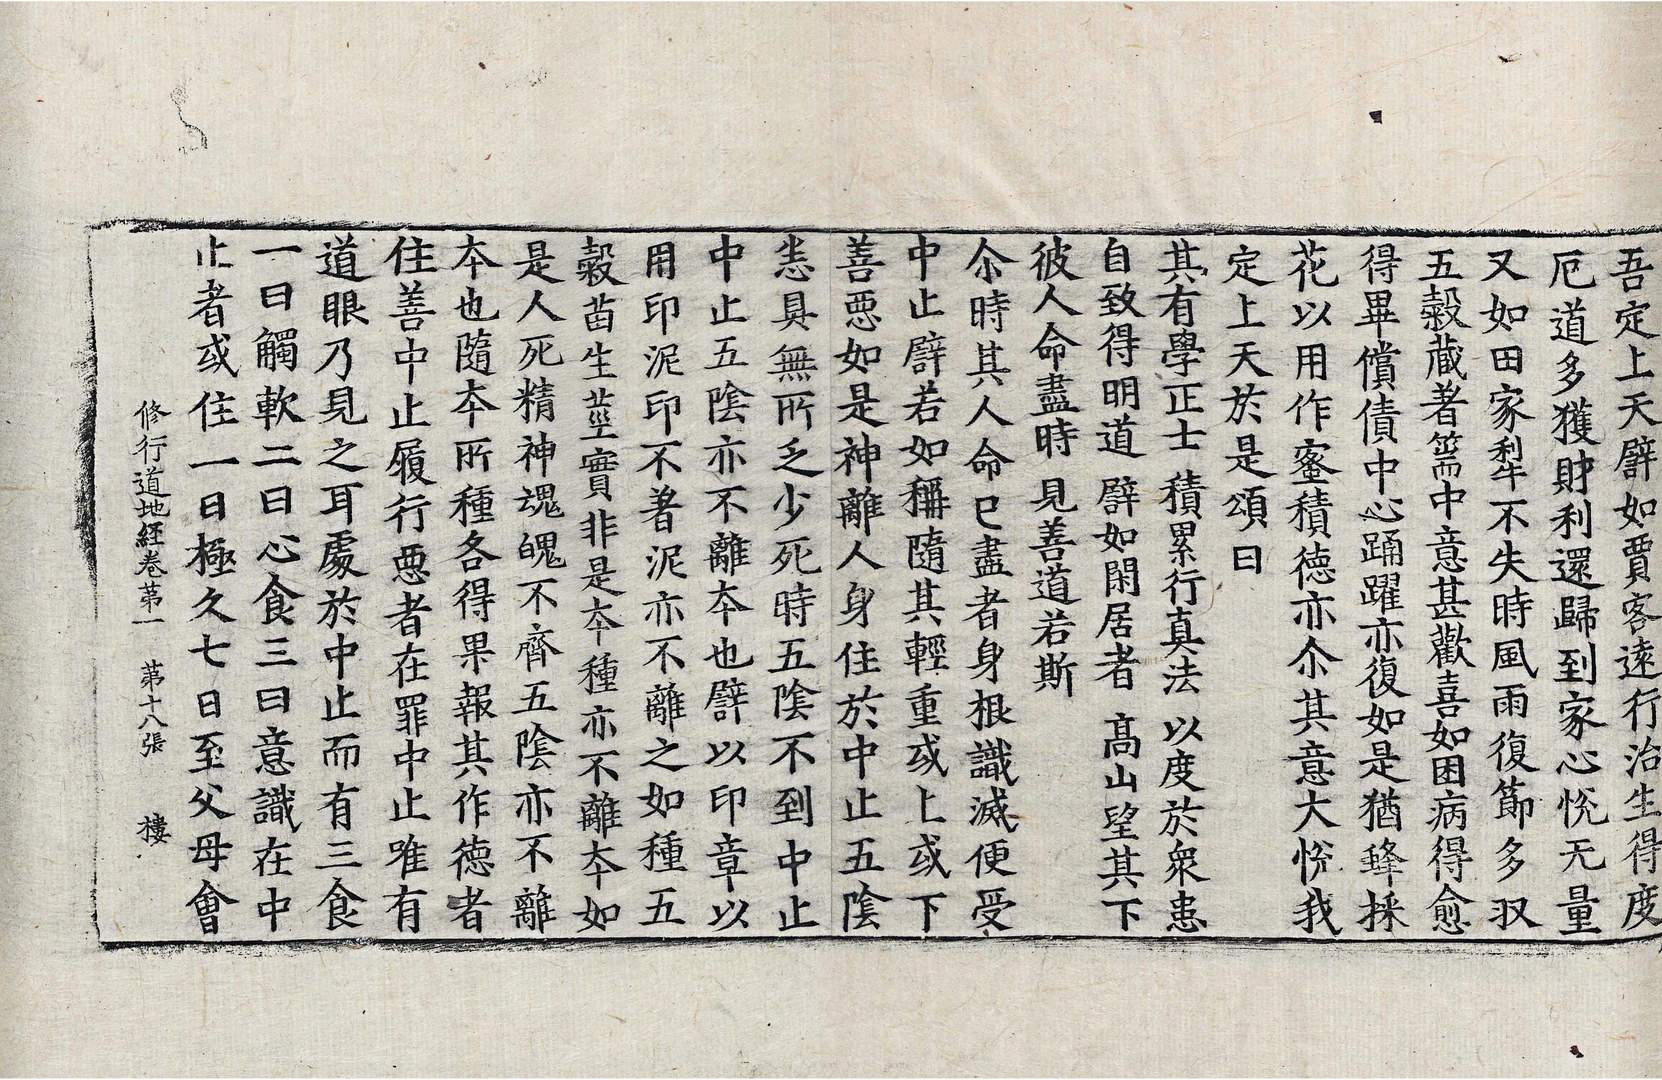 吾定上天譬如賈客遠行治生得度
厄道多獲財利還歸到家心恱无量
又如田家犁不失時風雨復節多収
五穀藏著篅中意甚歡喜如困病得愈
得畢償債中心踊躍亦復如是猶蜂採
花以用作蜜積德亦尒其意大恱我
定上天於是頌曰
其有學正士 積累行真法 以度於衆恚
自致得明道 譬如閑居者 高山望其下
彼人命盡時 見善道若斯
尒時其人命已盡者身根識滅便受
中止譬若如稱隨其輕重或上或下
善悪如是神離人身住於中止五陰
悉具無所乏少死時五陰不到中止
中止五陰亦不離夲也譬以印章以
用印泥印不著泥亦不離之如種五
穀苗生莖實非是夲種亦不離夲如
是人死精神魂魄不齊五陰亦不離
夲也隨夲所種各得果報其作德者
住善中止履行悪者在罪中止唯有
道眼乃見之耳處於中止而有三食
一曰觸軟二曰心食三曰意識在中
止者或住一日極久七日至父母會
修行道地經卷苐一 苐十八張 樓